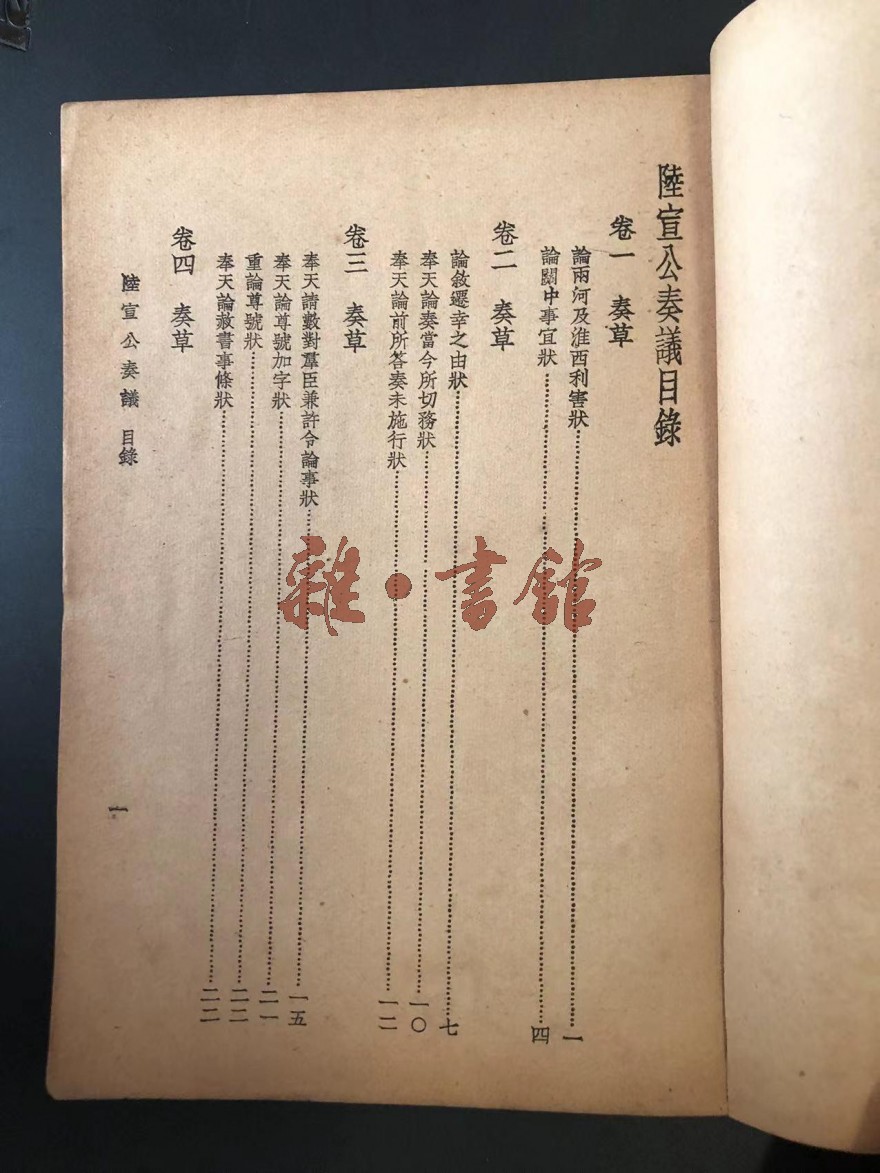 陸宣公奏議目錄
卷一 奏草
論兩河及淮西利害狀……一
論關中事宜狀……四
卷二 奏草
論敘遷幸之由狀……七
奉天論奏當今所切務狀……一〇
奉天論前所答奏未施行狀……一二
卷三 奏草
奉天請數對羣臣兼許令論事狀……一五
奉天論尊號加字狀……二一
重論尊號狀……二二
奉天論赦書事條狀……二二
卷四 奏草
陸宣公奏議 目錄
一
雜·書館